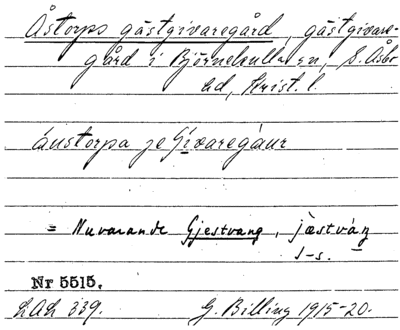 Åstorps gästgivaregård, gästgivare-
gård i Björnekulla sn, S. Åsbo
hd, Krist. l.
áustorpa je Gívaregáur
= Nuvarande Gjestvang, jæstváŋ
s-s.
Nr 5515.
LAL 339. G. Billing 1915-20.